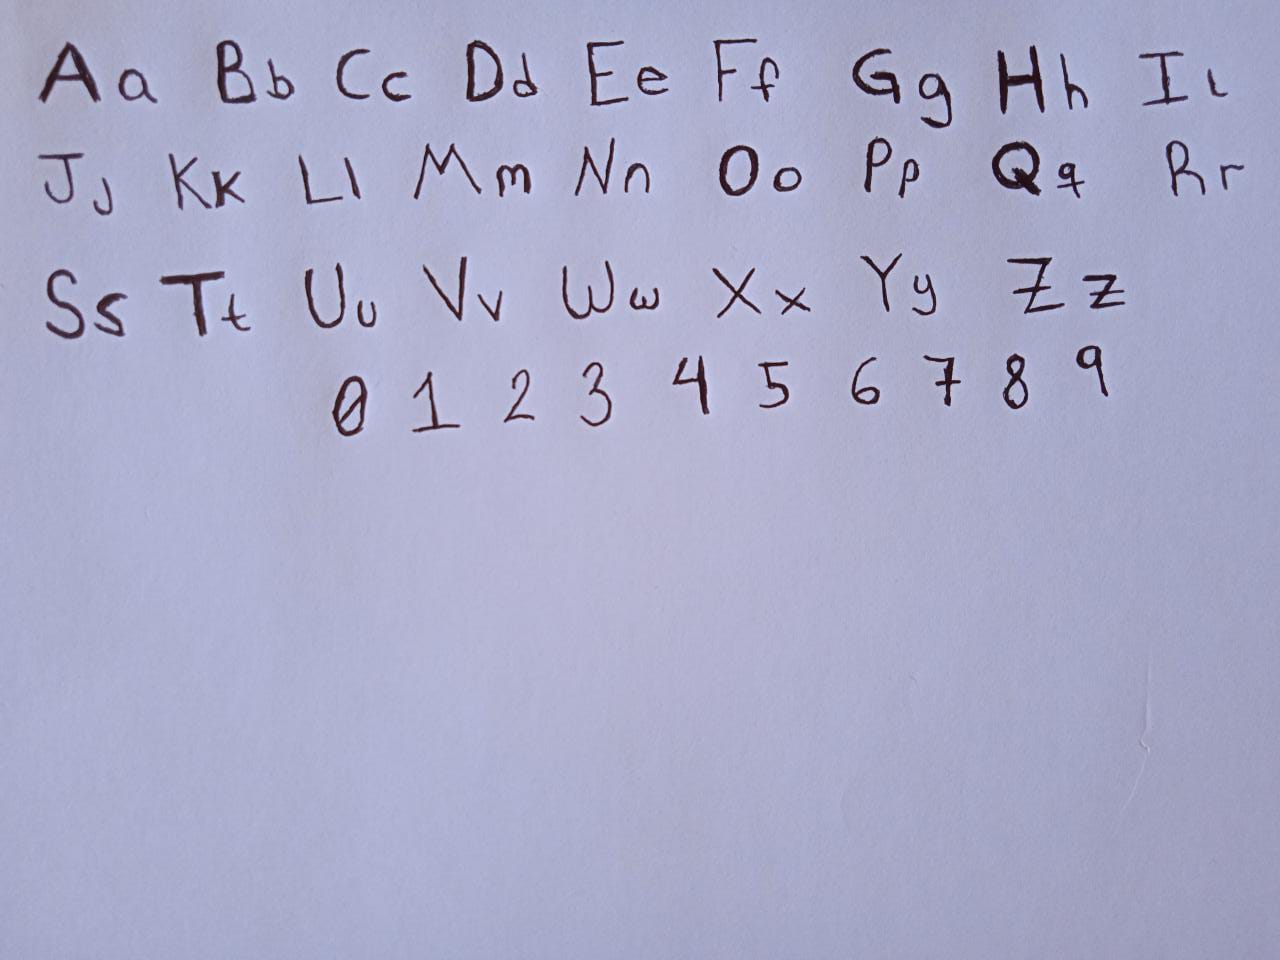 Aa Bb Cc Dd Ee Ff Gg Hh Ii
Jj Kk Ll Mm Nn Oo Pp Qq Rr
Ss Tt Uu Vv Ww Xx Yy Zz
0 1 2 3 4 5 6 7 8 9